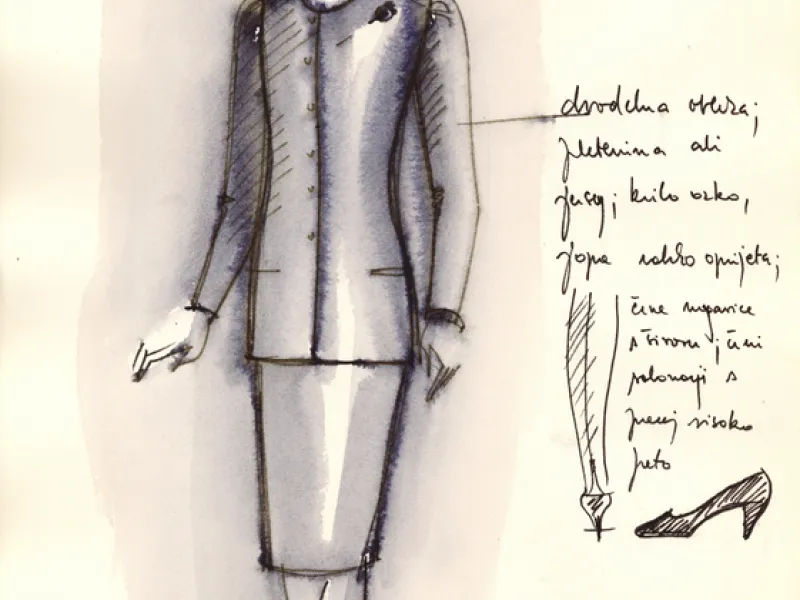 dvodelna obleka;
pletenina ali
jersey; krilo ozko,
jopa rahlo oprijeta;
črne nogavice
s šivom; črni
salonarji s
precej visoko
peto